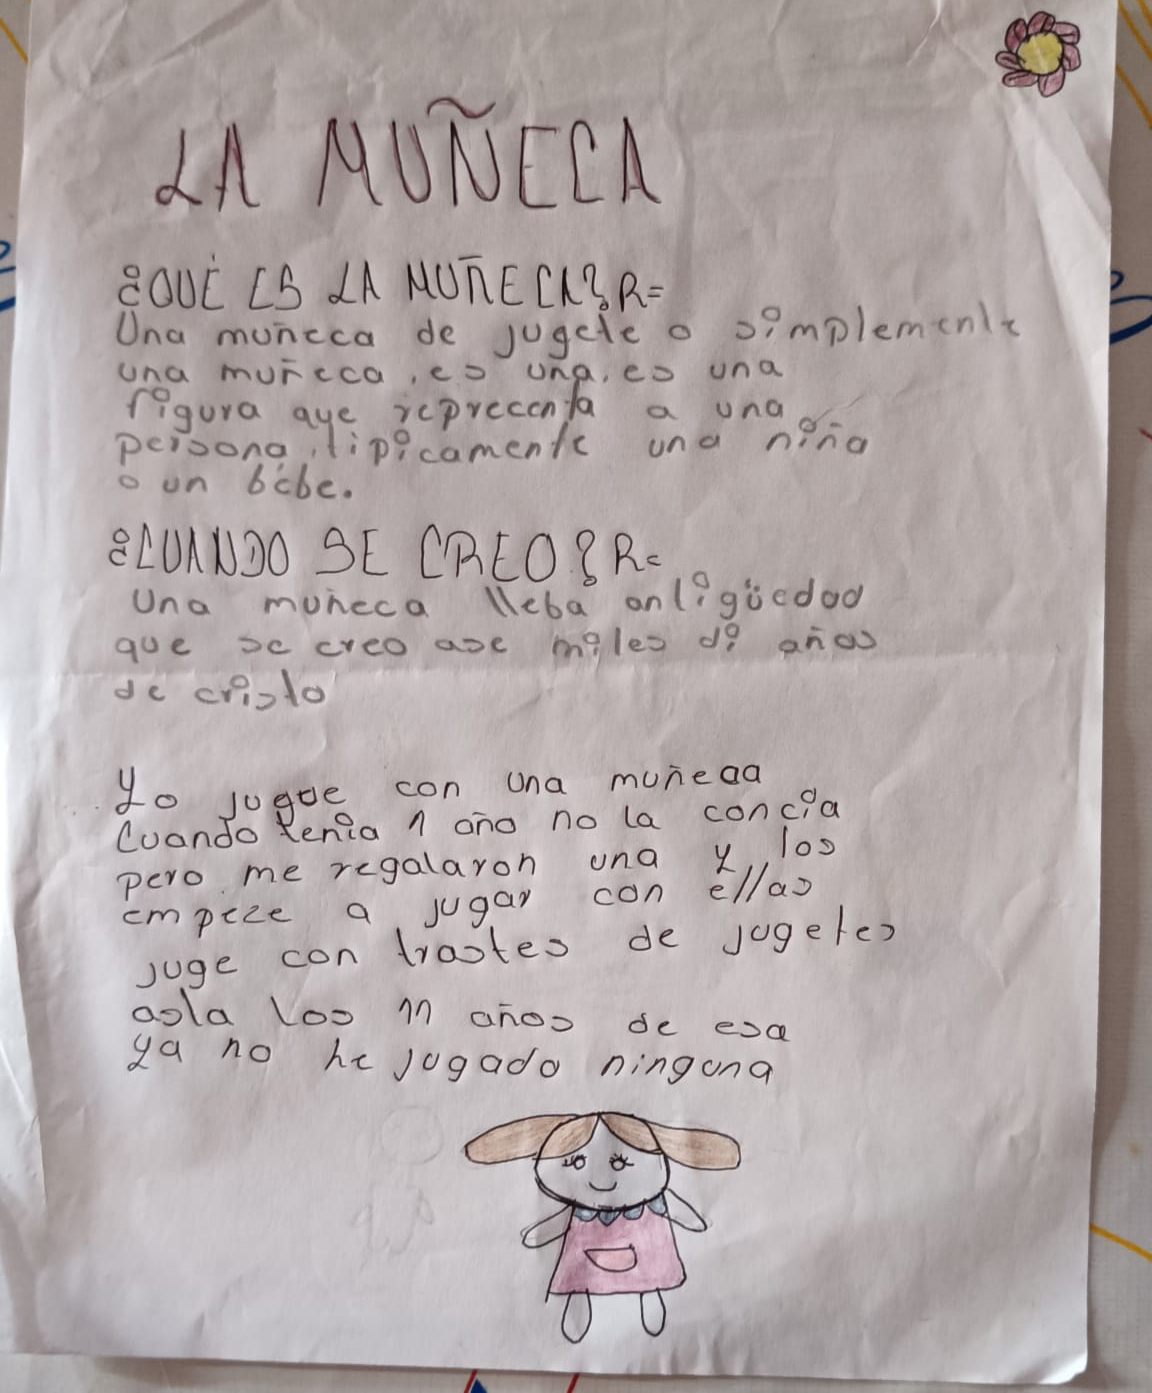 LA MUÑECA
¿QUÉ ES LA MUÑECA? R=
Una muñeca de jugete o simplemente
una muñeca, es una, es una
figura que reprecenta a una
persona, tipicamente una niña
o un bébe.
¿CUANDO SE CREO? R=
Una muñeca lleba antigüedad
que se creo ase miles di años
de cristo
Yo jugue con una muñeca
Cuando tenia 1 año no la concia
pero me regalaron una y los
empeze a jugar con ellas
juge con trastes de jugetes
asta los 11 años de esa
ya no he jugado ninguna